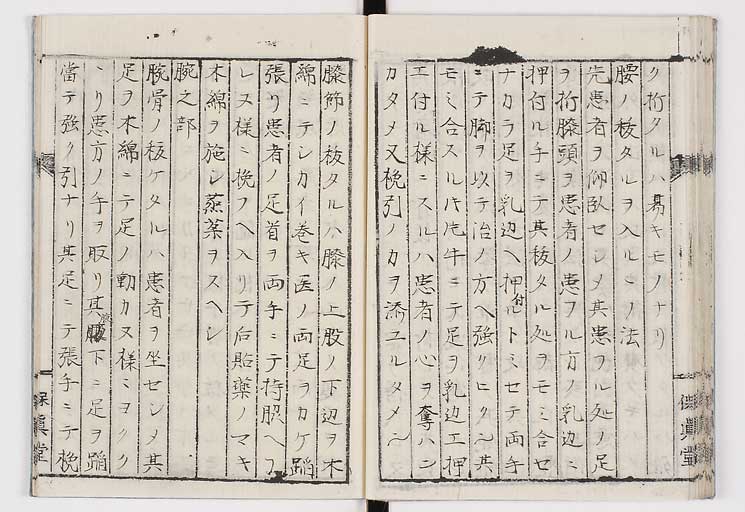 ク折タルハ易キモノナリ
腰ノ板タルヲ入ルヽノ法
先患者ヲ仰臥セシメ其患ヲル処ノ足
ヲ折膝頭ヲ患者ノ患フル方ノ乳辺ニ
押付ル手ニテ其板タル処ヲモミ合セ
ナカラ足ヲ乳辺ヘ押付ルトミセテ両手
ニテ脚ヲ以テ治ノ方ヘ強クヒク〜其
モミ合スル片片牛ニテ足ヲ乳辺エ押
エ付ル様ニスルハ患者ノ心ヲ奪ハン
カタメ又挽引ノ力ヲ添エルタメ〜
膝節ノ板タルハ膝ノ上股ノ下辺ヲ木
綿ニテシカイ巻キ医ノ両足ヲカケ踏
張リ患者ノ足首ヲ両手ニテ持脇ヘフ
レヌ様ニ挽フヘ入リテ后貼薬ノマキ
木綿ヲ施シ蒸薬ヲスヘシ
腕之部
腕骨ノ板ケタルハ患者ヲ坐セシメ其
足ヲ木綿ニテ足ノ動カヌ様ニヨクヽク
ヽリ患方ノ手ヲ取リ其腋下ニ足ヲ踏
當テ強ク引ナリ其足ニテ張手ニテ挽
保真堂
保真堂